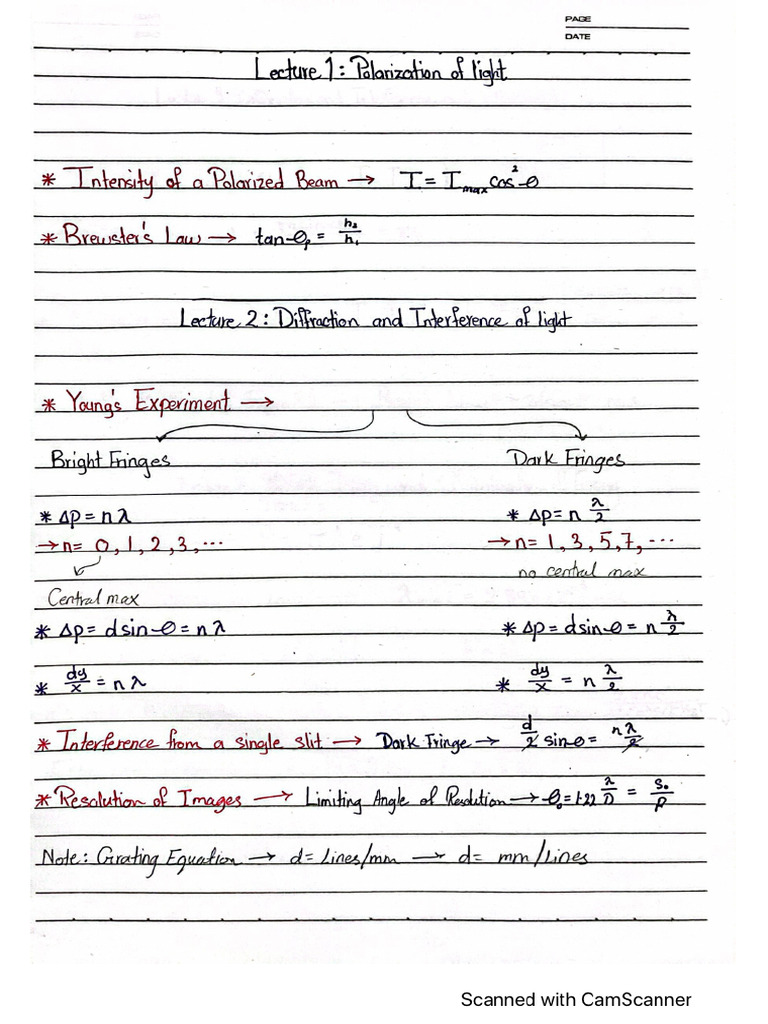 PAGE
DATE
Lecture 1: Polarization of light
* Intensity of a Polarized Beam → I = I_max cos²θ
* Brewster's Law → tan θₚ = n₂/n₁
Lecture 2: Diffraction and Interference of light
* Young's Experiment →
Bright Fringes Dark Fringes
* Δp = nλ * Δp = n λ/2
→ n = 0, 1, 2, 3, ... → n = 1, 3, 5, 7, ...
no central max
Central max
* Δp = d sin θ = nλ * Δp = d sin θ = n λ/2
* dy/x = nλ * dy/x = n λ/2
* Interference from a single slit → Dark Fringe → d/2 sin θ = nλ/2
* Resolution of Images → Limiting Angle of Resolution → θ₀ = 1.22 λ/D = S₀/P
Note: Grating Equation → d = Lines/mm → d = mm/Lines
Scanned with CamScanner